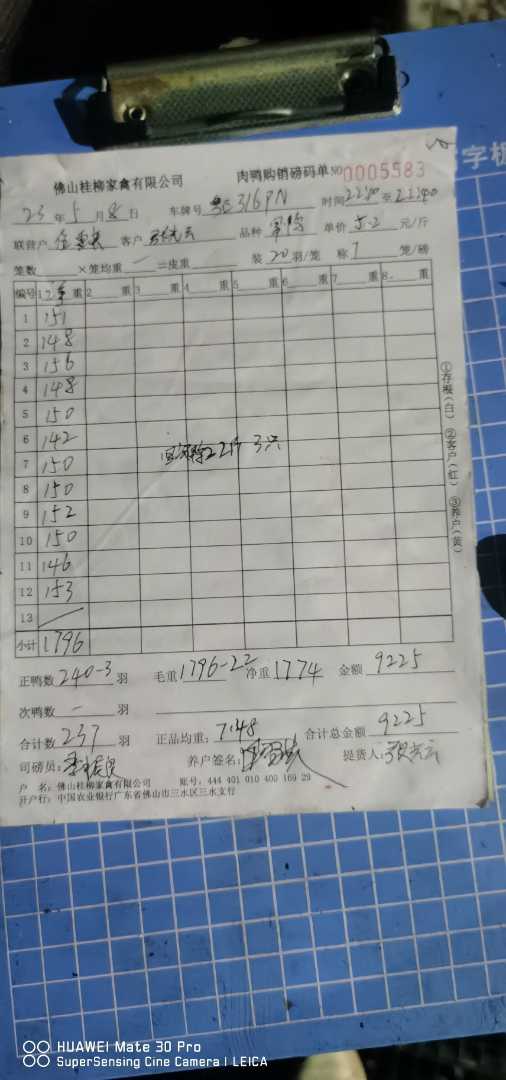 字板
佛山桂柳家禽有限公司 肉鸭购销磅码单 NO 0005583
23 年 5 月 8 日 车牌号 316PN 时间 至
联营户 客户 品种 单价 5.2 元/斤
笼数 ×笼均重 一 =皮重 装 20 羽/笼 称 1 笼/磅
编号 1 重 2 重 3 重 4 重 5 重 6 重 7 重 8 重
1 151
2 148
3 156
4 148
5 150
6 142
7 150
8 150
9 152
10 150
11 146
12 153
13
小计 1796
22斤 3只
①存根(白) ②客户(红) ③养户(黄)
正鸭数 240-3 羽 毛重 1796-22 净重 1774 金额 9225
次鸭数 一 羽
合计数 237 羽 正品均重: 7.48 合计总金额 9225
司磅员: 养户签名: 提货人:
户 名: 佛山桂柳家禽有限公司 账号: 444 401 010 400 169 29
开户行: 中国农业银行广东省佛山市三水区三水支行
HUAWEI Mate 30 Pro
SuperSensing Cine Camera | LEICA